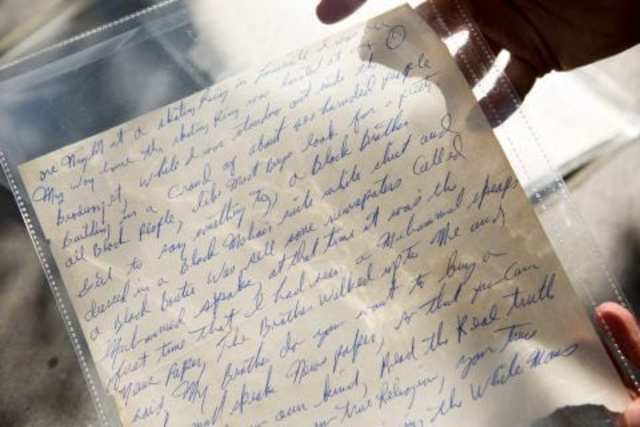 one Night at a skating Ring in Louisville I was on
My way home the skating Ring was located at
Broadway st, while I was standon out side the
building in a Crowd of about one hundred people
all Black people, like Most Boys look for a pretty
Girl to say something to, a Black Brother
dressed in a Black Mohair suite white shirt and
a Black Bowtie was sell some newspapers Called
Muhammad speaks, at that time it was the
first time that I had seen a Muhammad speaks
News Paper, The Brother walked up to Me and
said, My Brother do you want to buy a
speaks News paper, so that you Can
own kind, Read the Real truth
true Religion, your true
the White Mans